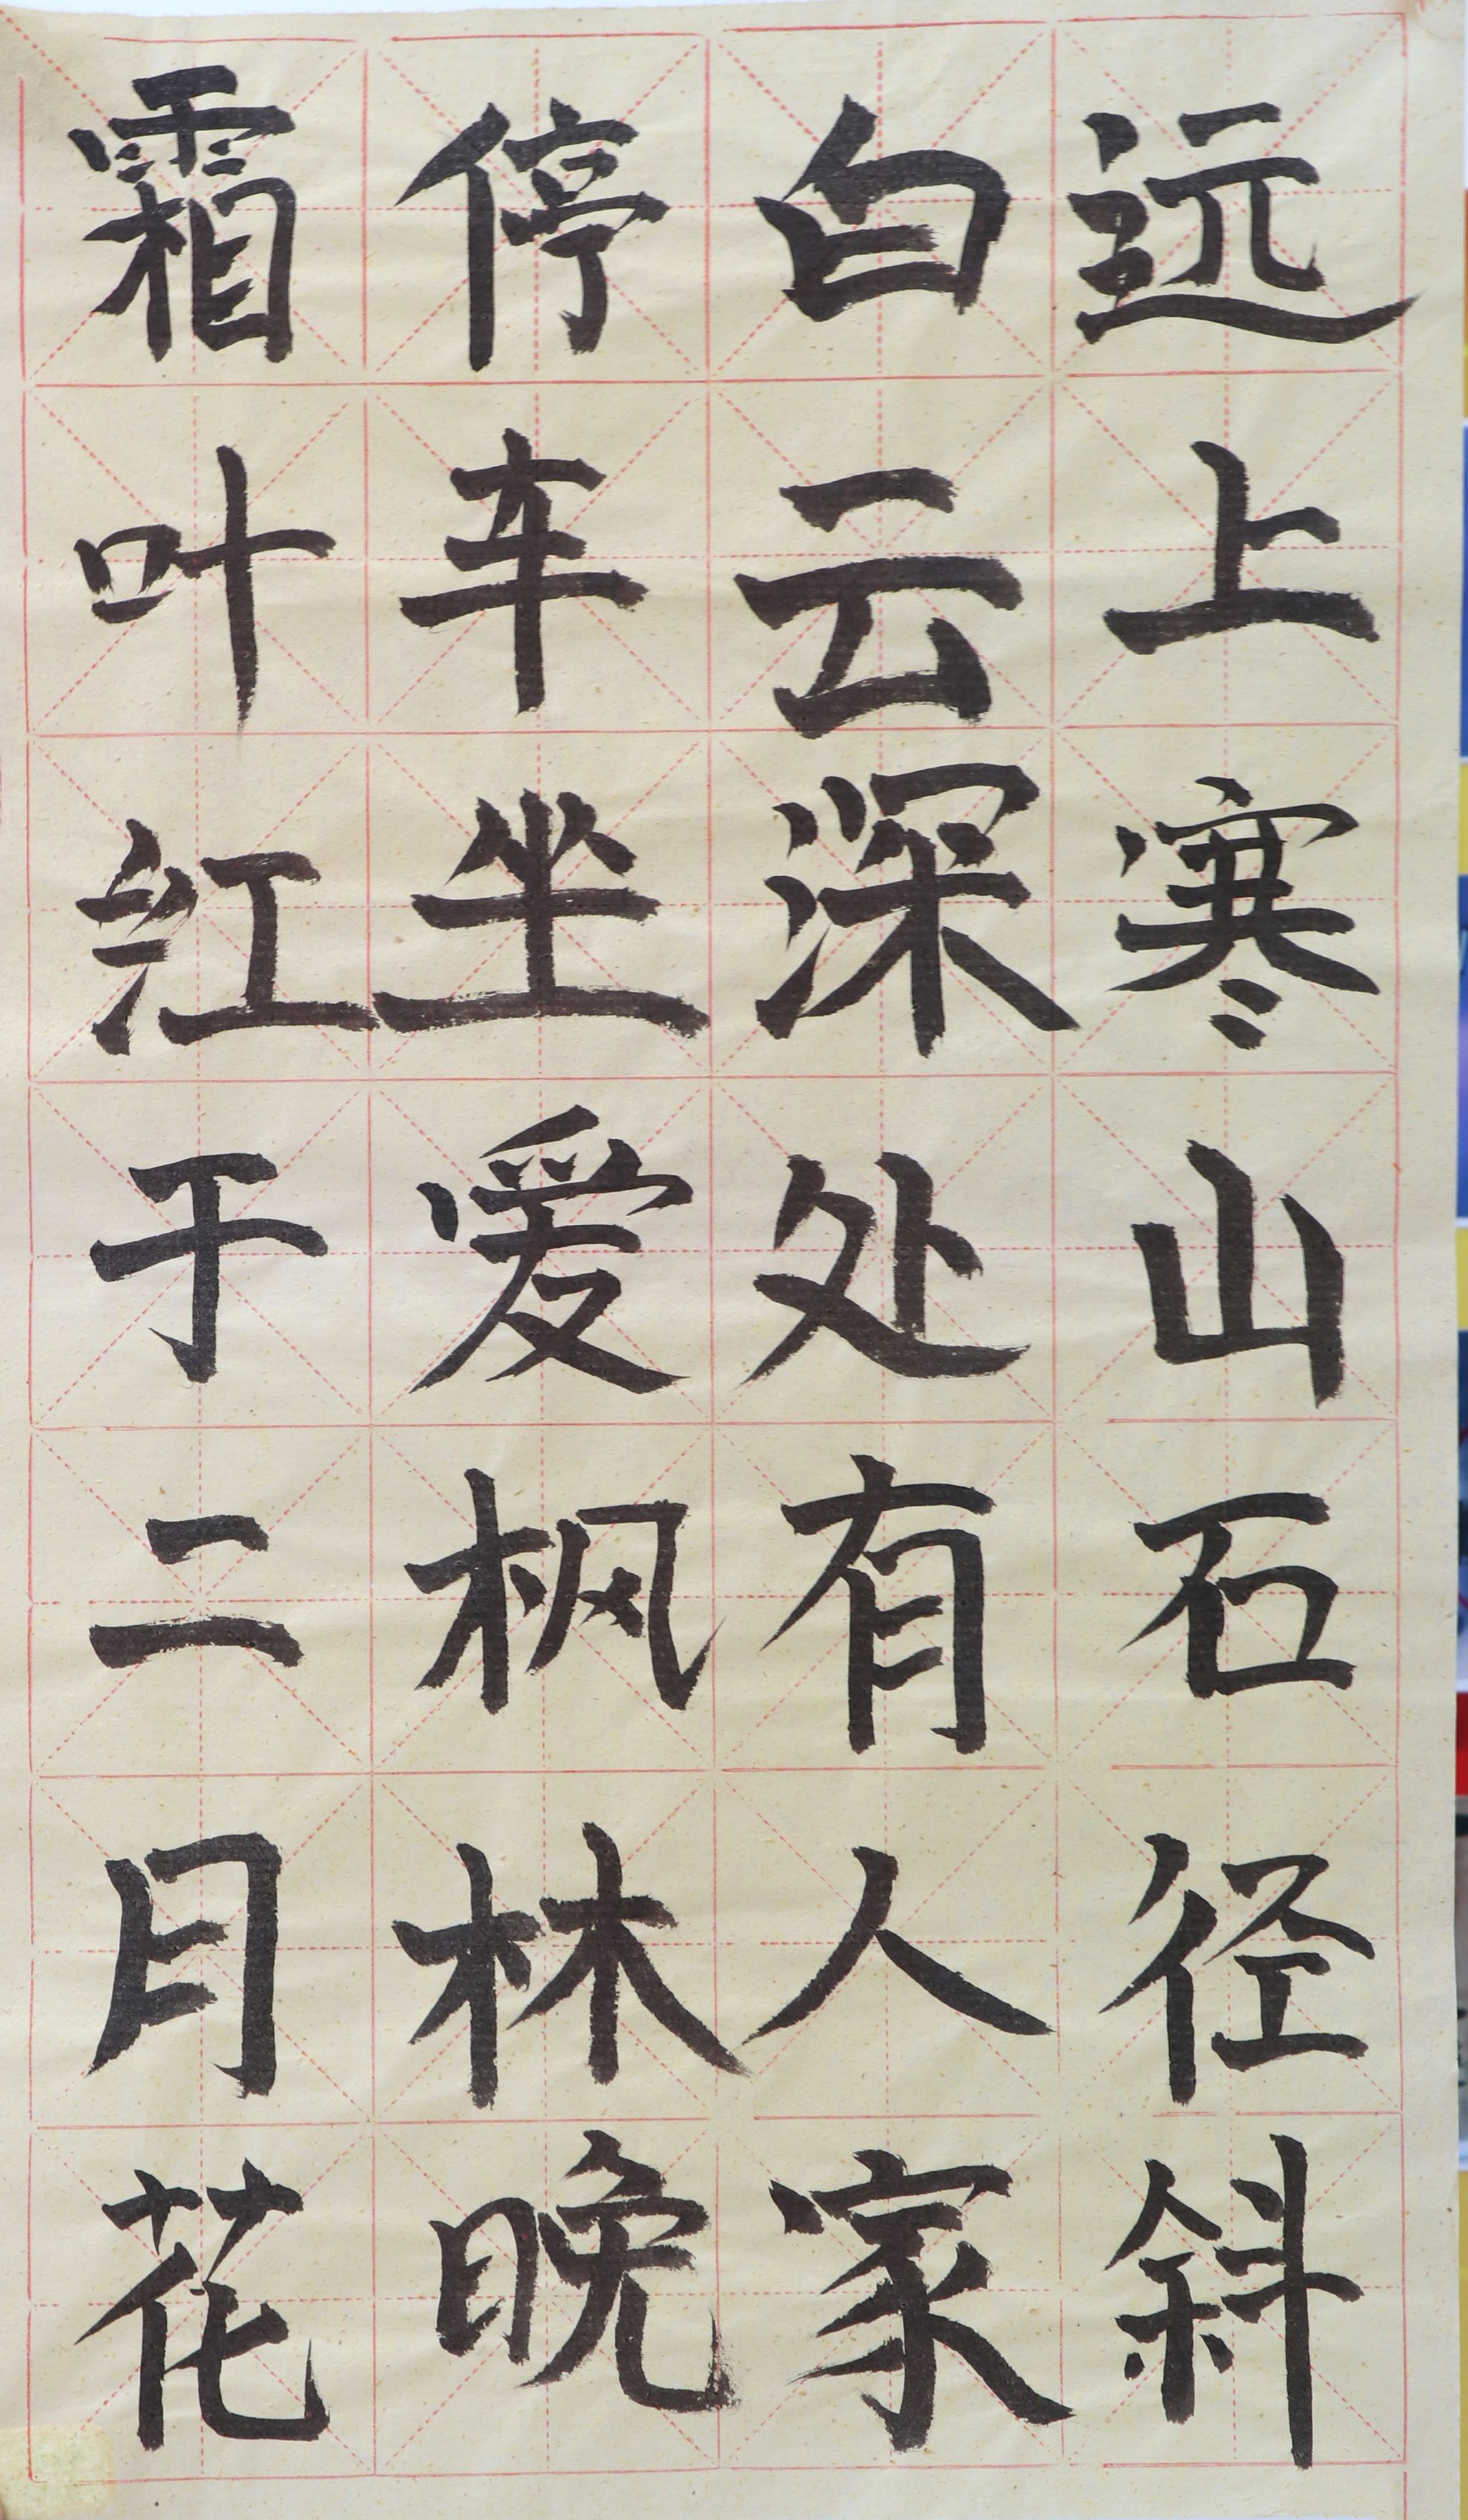 远上寒山石径斜
白云深处有人家
停车坐爱枫林晚
霜叶红于二月花